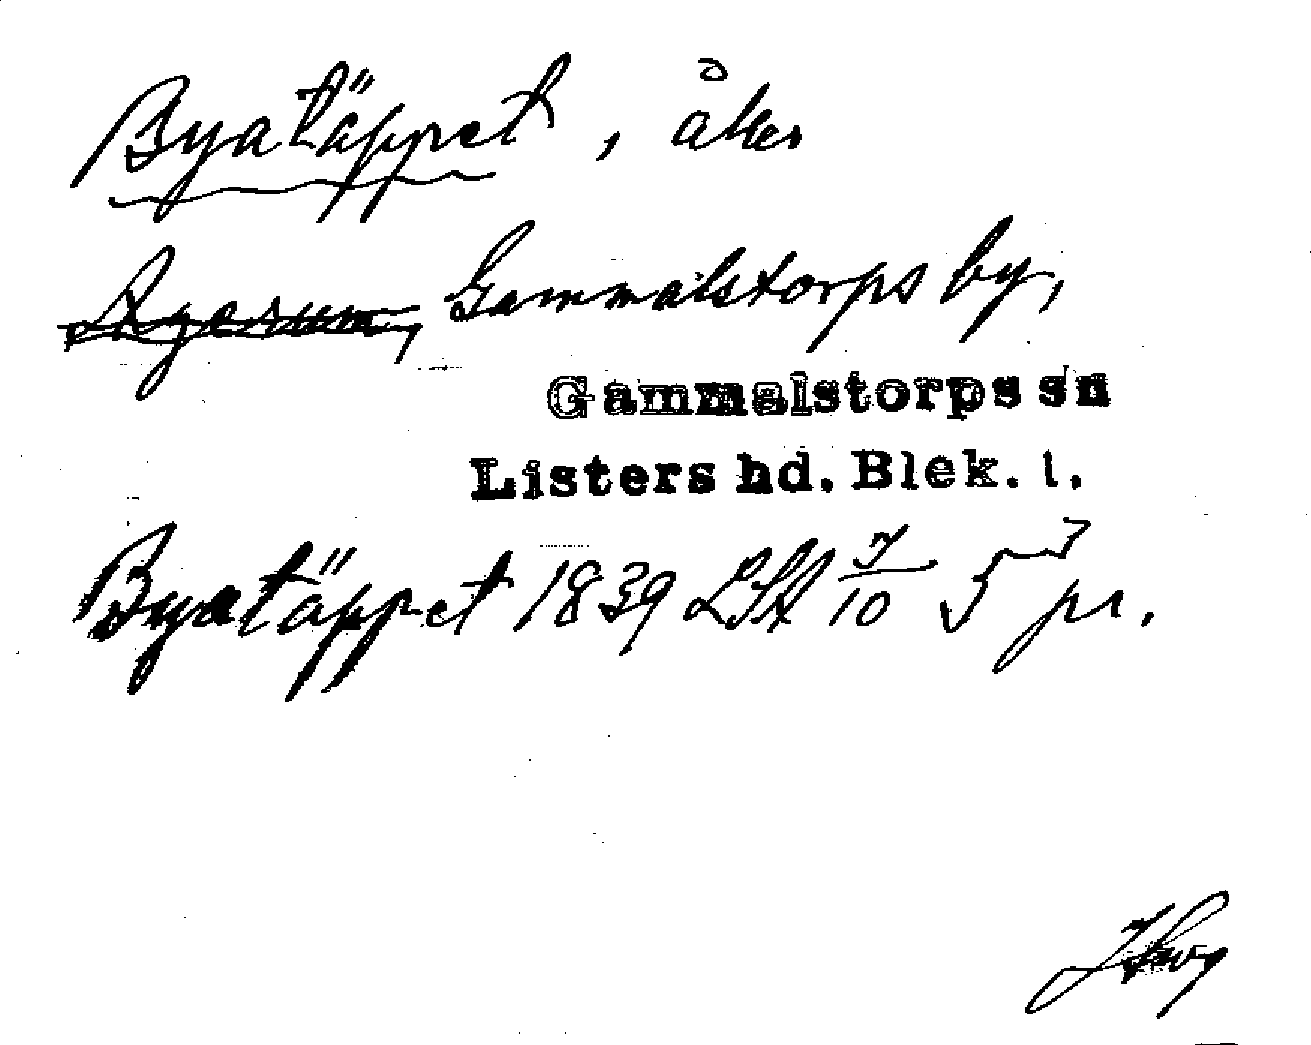 Byatäppet, åker
Agerum, Gammalstorps by,
Gammalstorps sn
Listers hd. Blek. l.
Byatäppet 1839 LSA 7/10 5 pr.